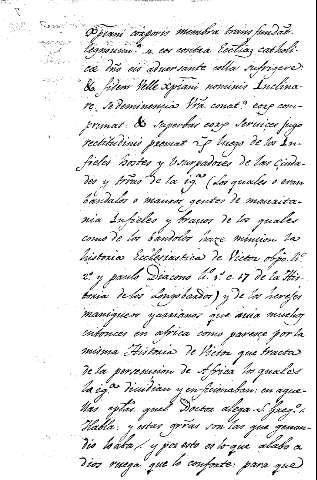 xp̃iani corporis membra transfundat
legionum
cos contra Eccliæ catholi-
cæ dños eis adversante colla surrigere
& fidem velle xp̃iani nominis Inclina-
re, sed eminencia Vr̃a conat. eorũ com-
primat. & superbas eorũ Cervices jugo
rectitudinis premat luego de los In-
fieles hostes y Usurpadores de las Ciuda-
des y trr̃as de la igª (los quales o eran
bandalos o mauros gentes de mauerita-
nia Infieles y bravos de los quales
como de los bandolos haze mincion la
historia Ecclesiastica de Victor obpo. li.
2º y paulo Diacono li. 1. c. 17 de la His-
toria de los Longobardos) y de los herejes
maniqueos y arrianos que avia muchos
entonces en africa como parece por la
misma Historia de Victor que tracta
de la persecucion de Africa los quales
la igª dividian y enficionaban: en aque-
llas eptas. quel Doctor alega S. Greg.
Habla: y estas grr̃as son las que genna-
dio loaba, y por esto es lo que alabo a
dios ruega que lo conforte: para que